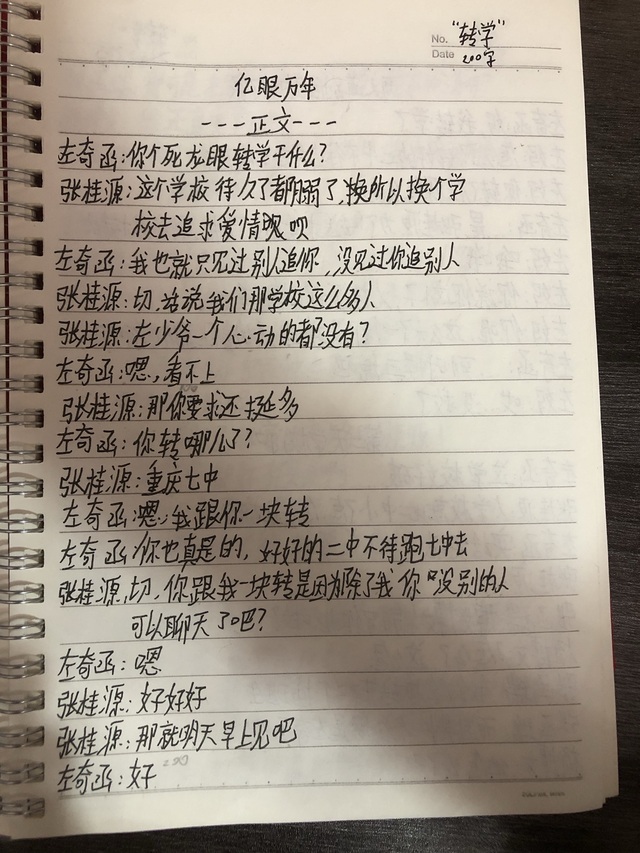 No. "转学"
Date 200字
亿眼万年
---正文---
左奇函:你个死龙眼转学干什么?
张桂源:这个学校待久了都腻了,换所以换个学
校去追求爱情呗呗
左奇函:我也就只见过别人追你,没见过你追别人
张桂源:切,话说我们那学校这么多人
张桂源:左少爷一个心动的都没有?
左奇函:嗯,看不上
张桂源:那你要求还挺多
左奇函:你转哪儿了?
张桂源:重庆七中
左奇函:嗯,我跟你一块转
左奇函:你也真是的,好好的二中不待跑七中去
张桂源:切,你跟我一块转是因为除了我你没别的人
可以聊天了吧?
左奇函:嗯
张桂源:好好好
张桂源:那就明天早上见吧
左奇函:好
200